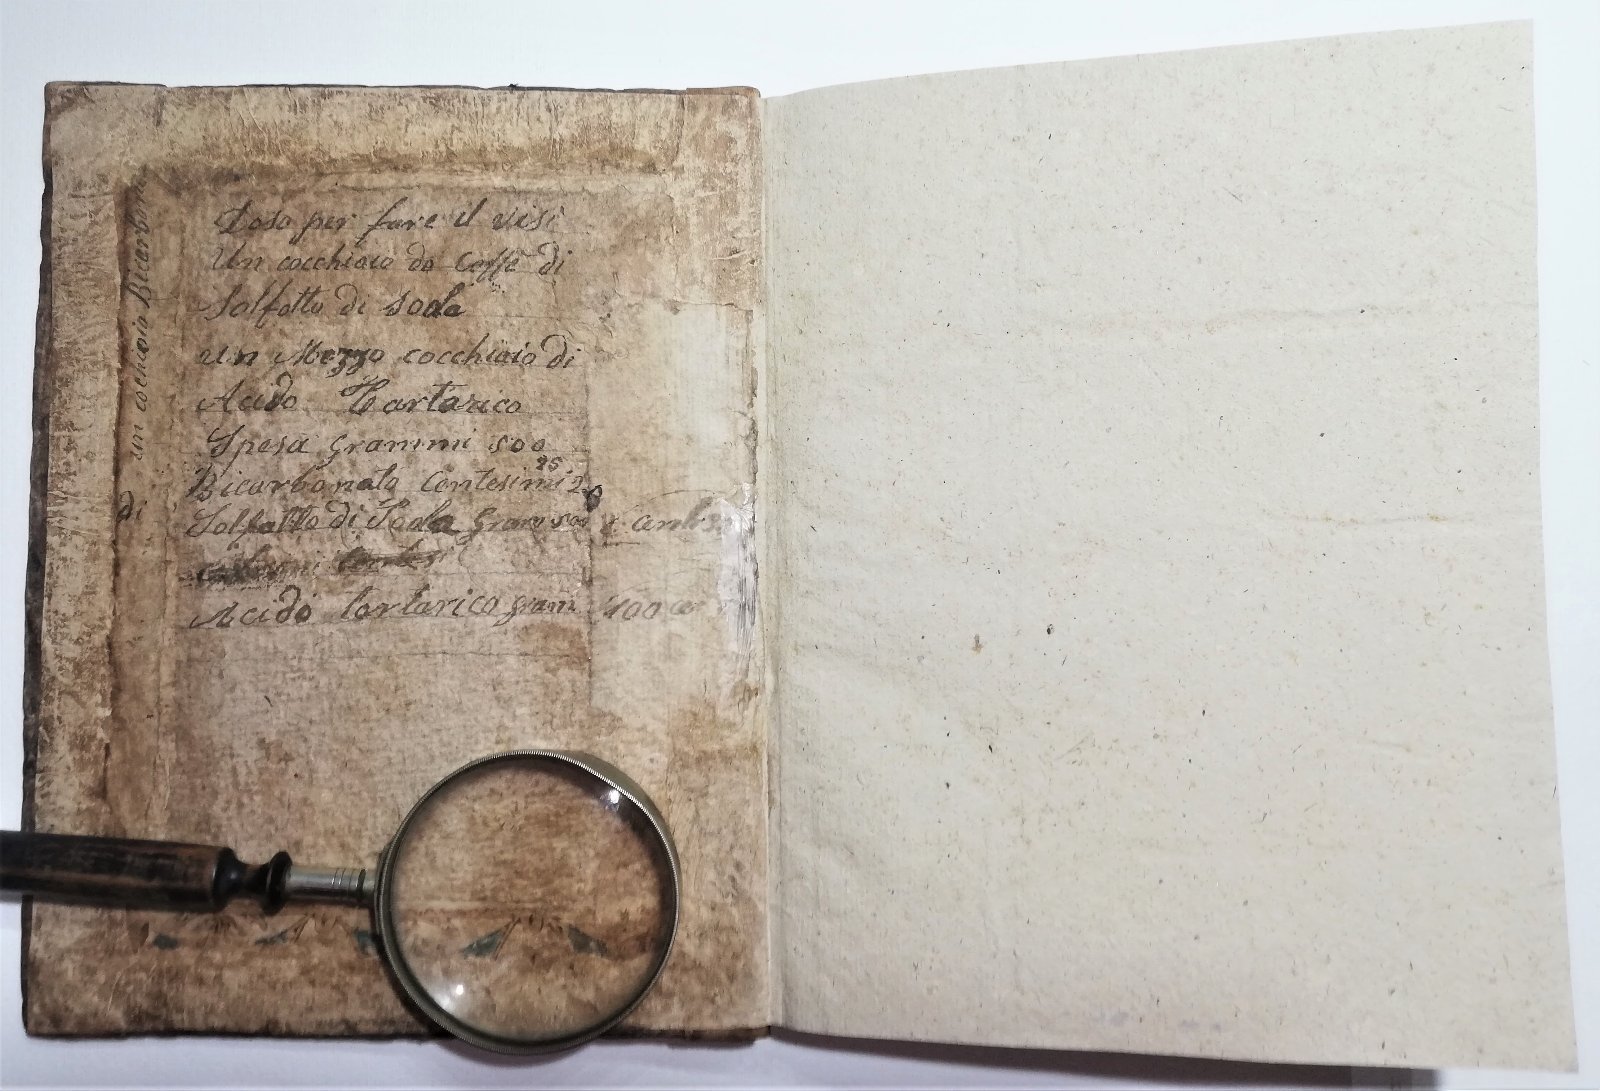 Doso per fare il visì
Un cocchiaio da Caffè di
Solfatto di Soda
Un Mezzo cocchiaio di
Acido Tartarico
Spesa grammi 500
25
Bicarbonato Centesimi 20
Solfatto di Soda Gram 500
Acido tartarico gram 100
un cochiaio Bicarbonato
di